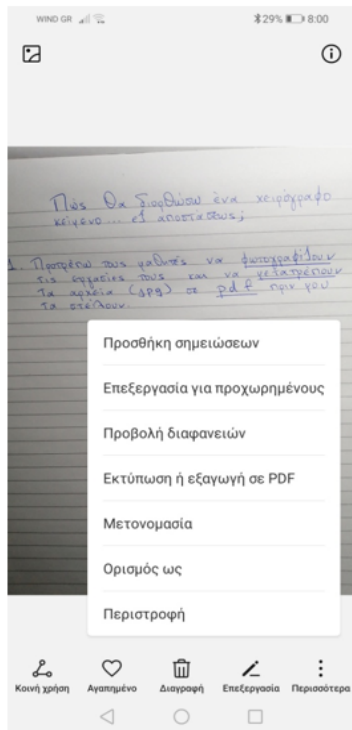 WIND GR 29% 8:00
Πώς θα διορθώσω ένα χειρόγραφο
κείμενο... εξ αποστάσεως;
1. Προτρέπω τους μαθητές να φωτογραφίζουν
τις εργασίες τους και να μετατρέπουν
τα αρχεία (jpg) σε pdf πριν μου
τα στείλουν.
Προσθήκη σημειώσεων
Επεξεργασία για προχωρημένους
Προβολή διαφανειών
Εκτύπωση ή εξαγωγή σε PDF
Μετονομασία
Ορισμός ως
Περιστροφή
Κοινή χρήση Αγαπημένο Διαγραφή Επεξεργασία Περισσότερα